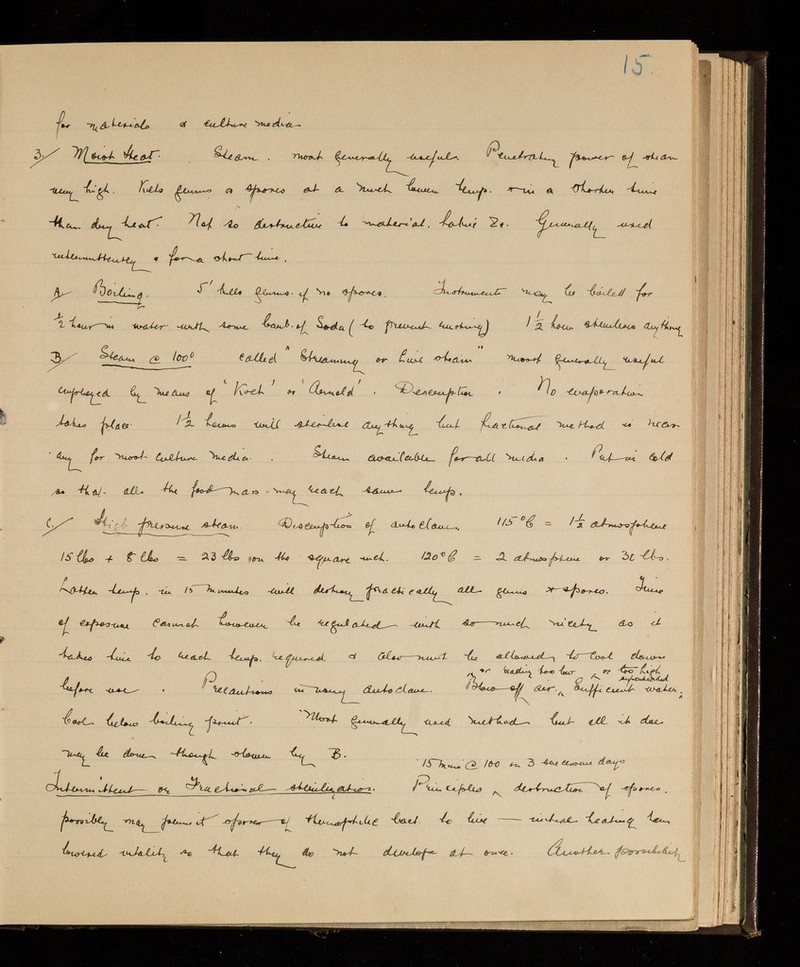 15
for materials & culture media
3/ Moist Heat. Steam. most generally useful. Penetrating power of steam
very high. Kills germs & spores at a much lower temp. & in a shorter time
than dry heat. Not so destructive to material, fabric &c. Generally used
intermittently & for a short time.
A/ Boiling. 5' kills germs. if no spores. Instruments may be boiled for
½ hour in water with some Carb. of Soda (to prevent rusting) 1½ hour sterilises anything
B/ Steam @ 100° called "Streaming or Live steam" most generally useful
employed by means of 'Koch' or 'Arnold'. Description. No evaporation
takes place 1½ hours will sterilise anything but fractional method is
any for most Culture media. Steam available for all media. Put in Cold
so that all the may reach same temp.
C/ High pressure steam. Description of autoclave. 115°C = 1½ atmosphere
15 lbs + 8 lbs = 23 lbs on the square inch. 120°C = 2 atmosphere or 30 lbs.
Latter temp. in 15 minutes will destroy practically all germs & spores. Time
of exposure cannot however be regulated with so much nicety as it
takes time to reach temp. required & also must be allowed to cool down
or reading too low or too high superheated
before use. Precautions in using autoclave. Blow off air, Sufficient water,
Cool below boiling point. Most generally used method but all it does
may be done though slower by B.
15 mins @ 100 on 3 successive days
Intermittent or Fractional sterilization. Principles destruction of spores.
possibly may permit spores of thermophilic bact. to live — initial heating has
lowered vitality so that they do not develope at once. Another possibility